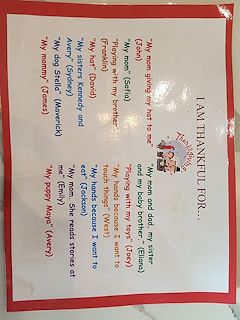 I AM THANKFUL FOR...
Thanksgiving
"My mom giving my hat to me"
(John)
"My mom" (Sofia)
"Playing with my brother"
(Franklin)
"My hat" (David)
"My sisters Kennedy and
Avery" (Sydney)
"My dog Stella" (Maverick)
"My mommy" (James)
"My mom and dad, my sister
and my baby brother." (Eliana)
"Playing with my toys" (Joey)
"My hands because I want to
touch things" (West)
"My hands because I want to
eat" (Jackson)
"My mom. She reads stories at
me" (Emily)
"My puppy Maya" (Avery)